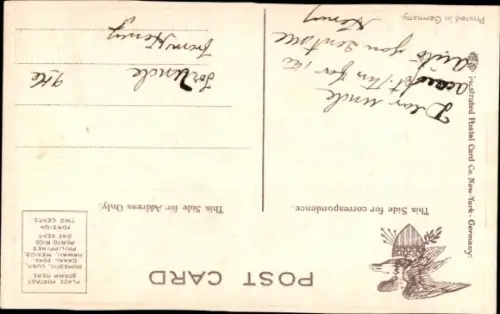 POST CARD
PLACE POSTAGE
STAMP HERE
DOMESTIC, CUBA,
CANAL ZONE,
HAWAII, MEXICO,
PHILIPPINES,
PORTO RICO
ONE CENT
FOREIGN
TWO CENTS.
This Side for correspondence.
This Side for Address Only.
Dear uncle
for me
you sent me
Henry
For Uncle
from Henry
Illustrated Postal Card Co., New-York - Germany.
Printed in Germany